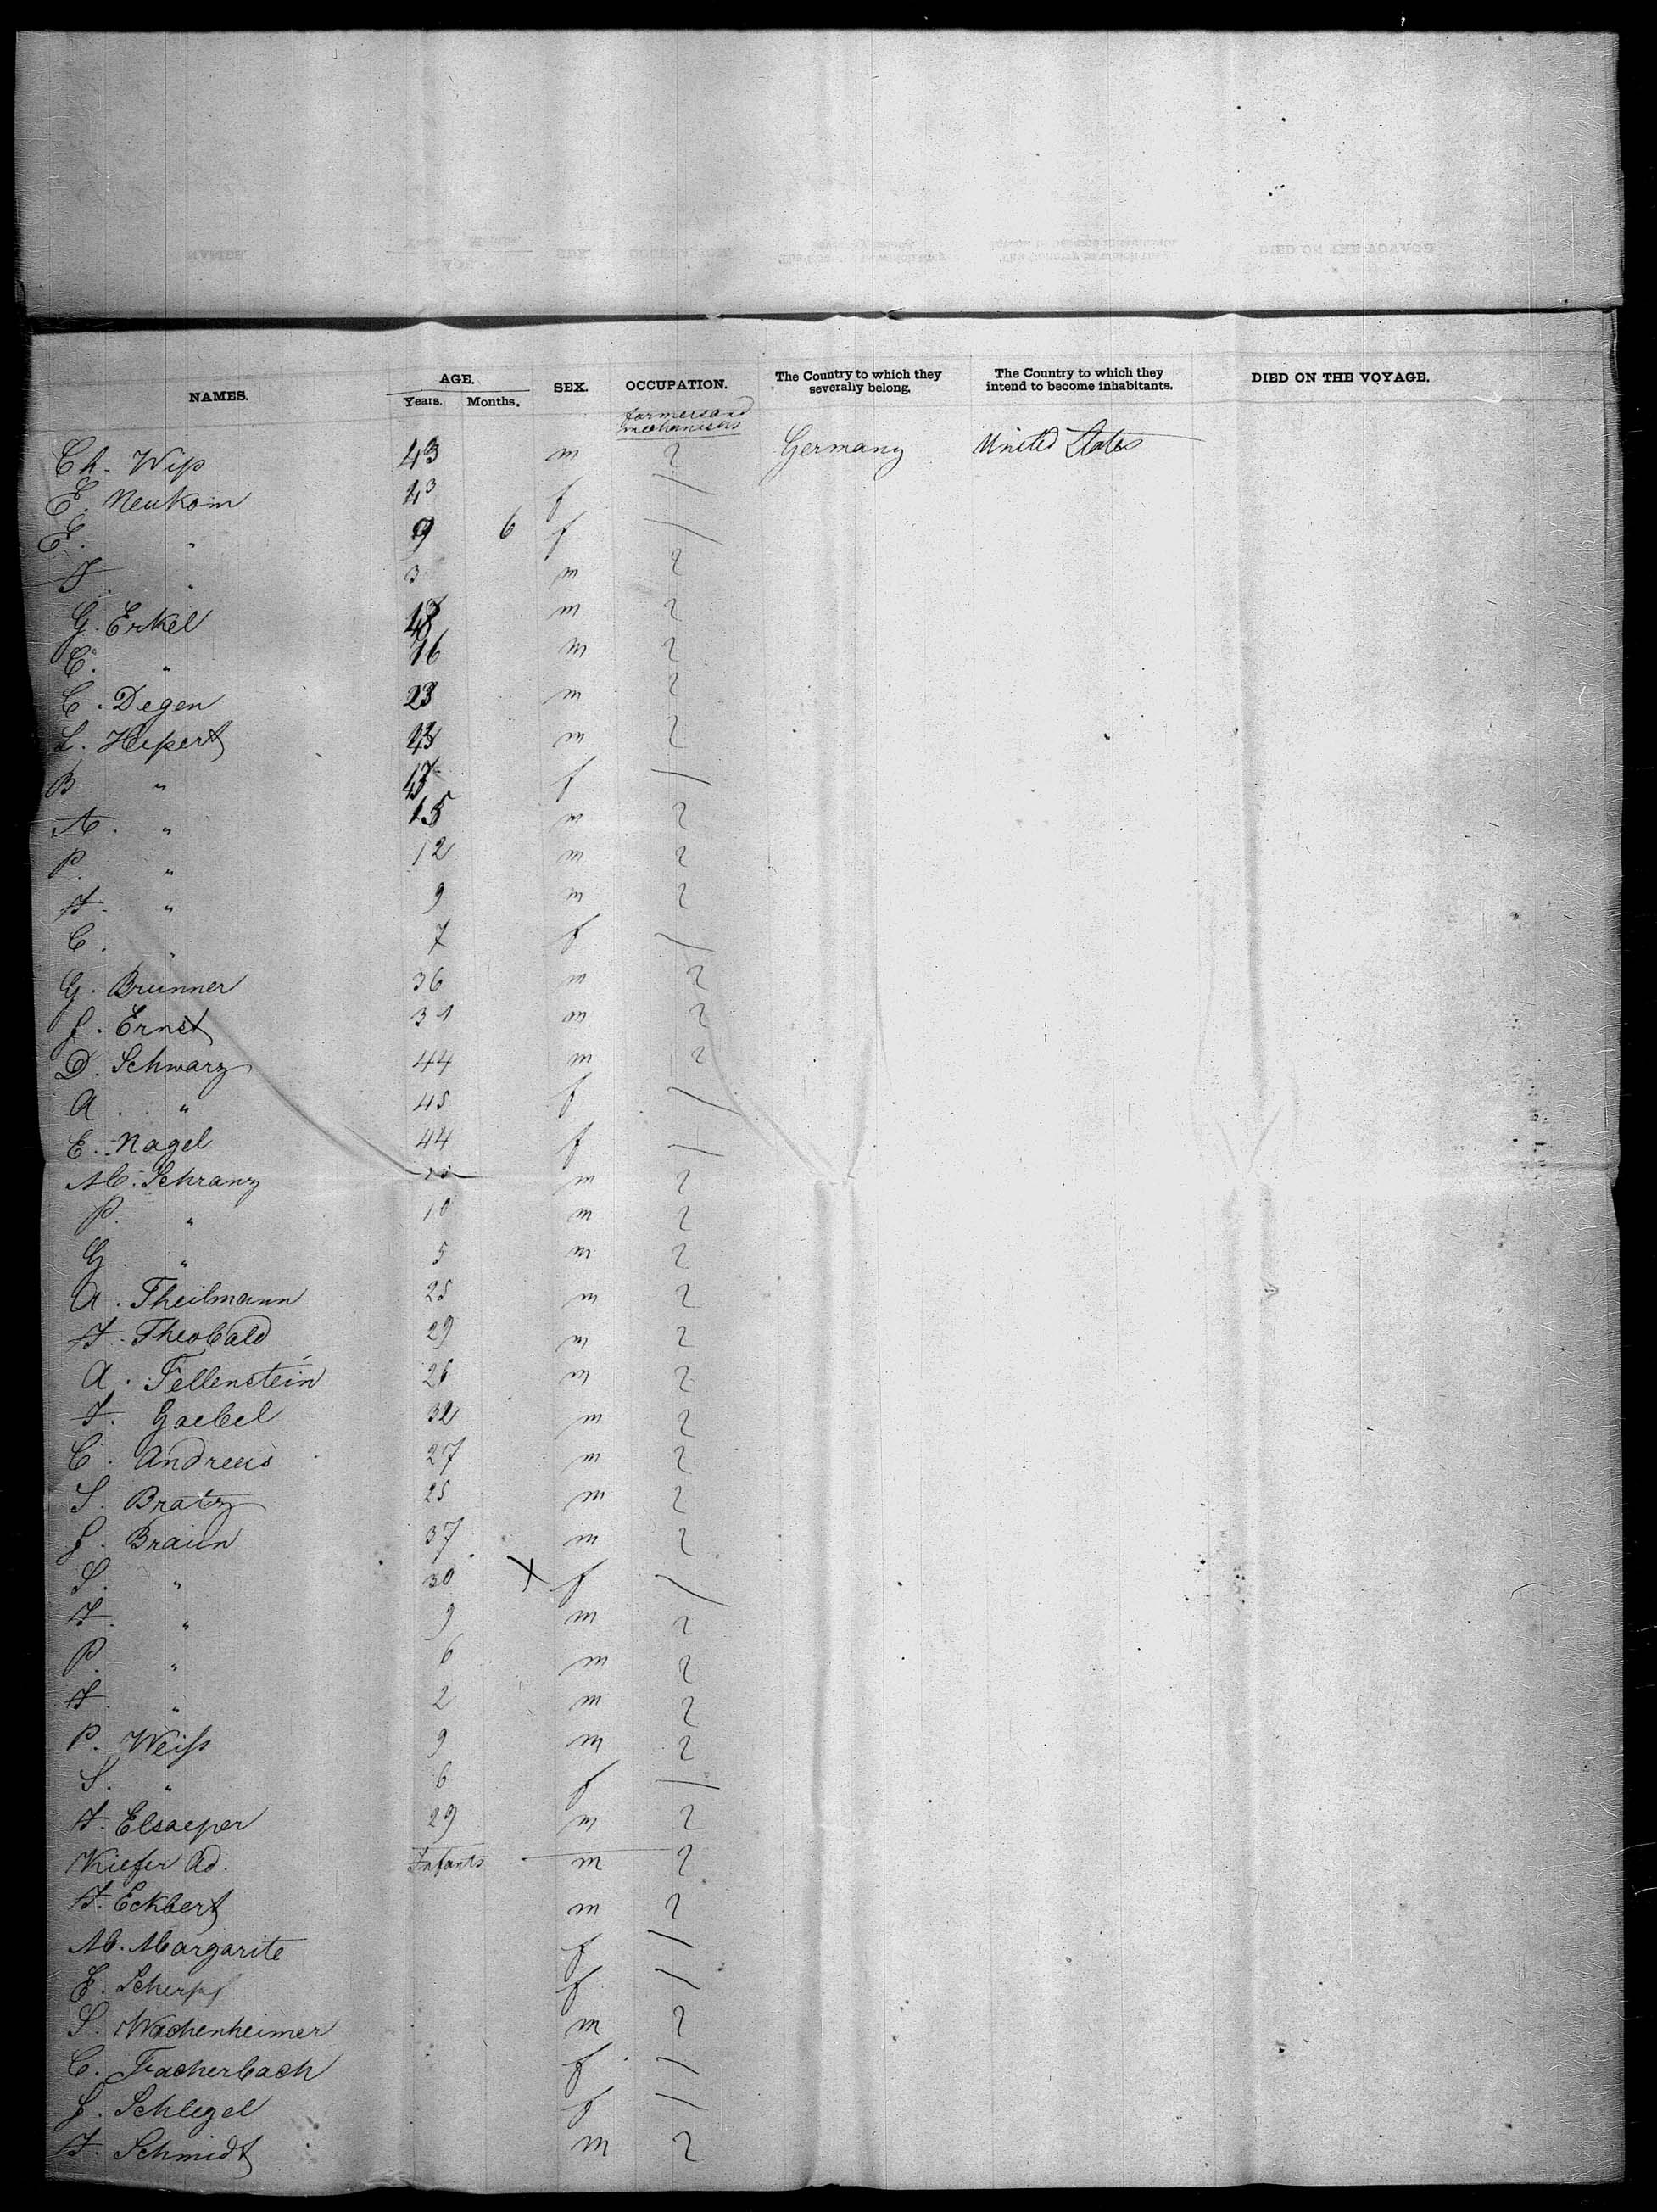 NAMES. AGE. Years. Months. SEX. OCCUPATION. The Country to which they severally belong. The Country to which they intend to become inhabitants. DIED ON THE VOYAGE.
farmers and mechanics
Ch. Wiss 43 m Germany United States
E. Neukom 43 f
E. " 9 6 f
F. " 3 m
G. Erkel m
C. " 16 m
C. Degen 23 m
L. Hessert 43 m
B " f
M. " 15 m
P. " 12 m
F. " 9 m
C. " 7 f
G. Brunner 36 m
J. Ernst 31 m
D. Schwarz 44 m
A. " 45 f
E. Nagel 44 f
M. Schranz m
P. " 10 m
G. " 5 m
A. Theilmann 25 m
F. Theobald 29 m
A. Fellenstein 26 m
F. Goebel 32 m
C. Andreas 27 m
S. Bratz 25 m
J. Braun 37 m
S. " 30 X f
F. " 9 m
P. " 6 m
F. " 2 m
P. Weiss 9 m
S. " 6 f
F. Elsaesser 29 m
Kiefer Ad. Infants m
F. Eckbert m
M. Margarite f
E. Scherpf f
S. Wachenheimer m
C. Facherbach f
J. Schlegel f
F. Schmidt m